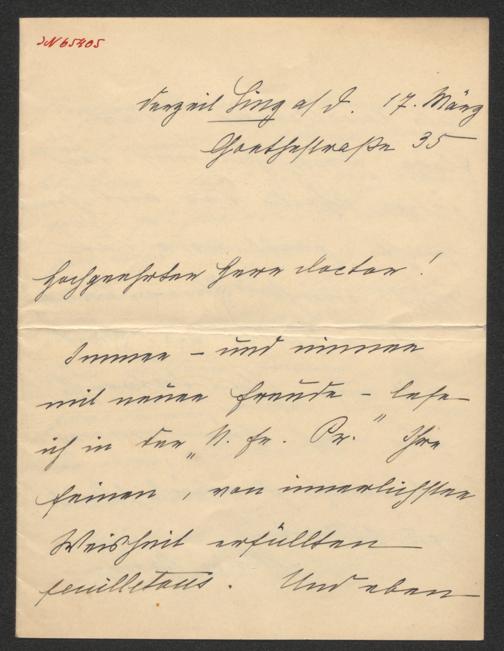 IN 65405
derzeit Linz a/D. 17. März
Goethestraße 35
Hochgeehrter Herr Doctor!
Immer – und immer
mit neuer Freude – lese
ich in der „N. Fr. Pr." Ihre
feinen, von innerlichster
Weisheit erfüllten
Feuilletons. Und eben